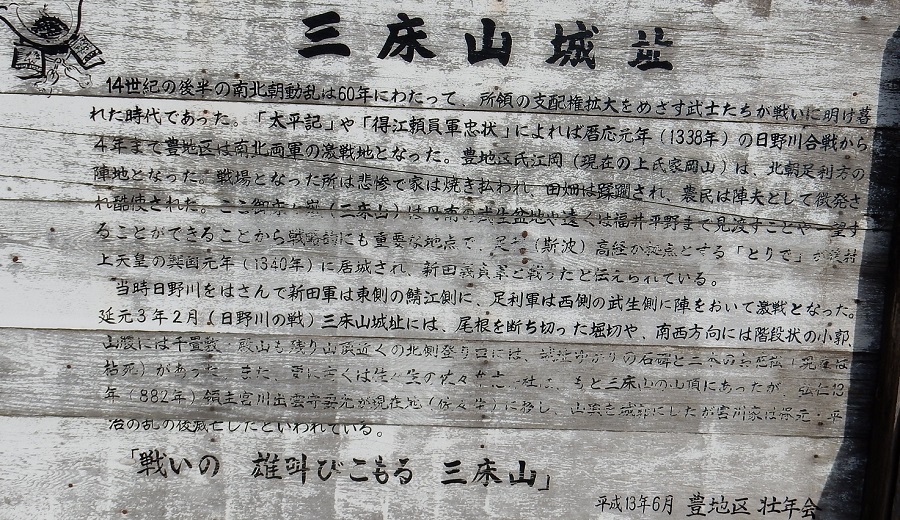 三床山城址
14世紀の後半の南北朝動乱は60年にわたって、所領の支配権拡大をめざす武士たちが戦いに明け暮
れた時代であった。「太平記」や「得江頼員軍忠状」によれば暦応元年(1338年)の日野川合戦から
4年まで豊地区は南北両軍の激戦地となった。豊地区氏江岡(現在の上氏家岡山)は、北朝足利方の
陣地となった。戦場となった所は悲惨で家は焼き払われ、田畑は蹂躙され、農民は陣夫として徴発さ
れ酷使された。ここ御床山城(三床山)は丹南の武生盆地や遠くは福井平野まで見渡すことや一望す
ることができることから戦略的にも重要な地点で、足利(斯波)高経が拠点とする「とりで」が後村
上天皇の興国元年(1340年)に居城され、新田義貞軍と戦ったと伝えられている。
当時日野川をはさんで新田軍は東側の鯖江側に、足利軍は西側の武生側に陣をおいて激戦となった。
延元3年2月(日野川の戦)三床山城址には、尾根を断ち切った堀切や、南西方向には階段状の小郭、
山腹には千畳敷、殿山も残り山頂近くの北側登り口には、城址の石碑と三本の
枯死)があった。また、更に古くは佐々生の佐々牟志神社は、もと三床山の山頂にあったが、弘仁13
年(882年)領主宮川出雲守が現在地(佐々生)に移し、山頂を城郭にしたが宮川家は保元・平
治の乱の後滅亡したといわれている。
「戦いの 雄叫びこもる 三床山」
平成13年6月 豊地区 壮年会